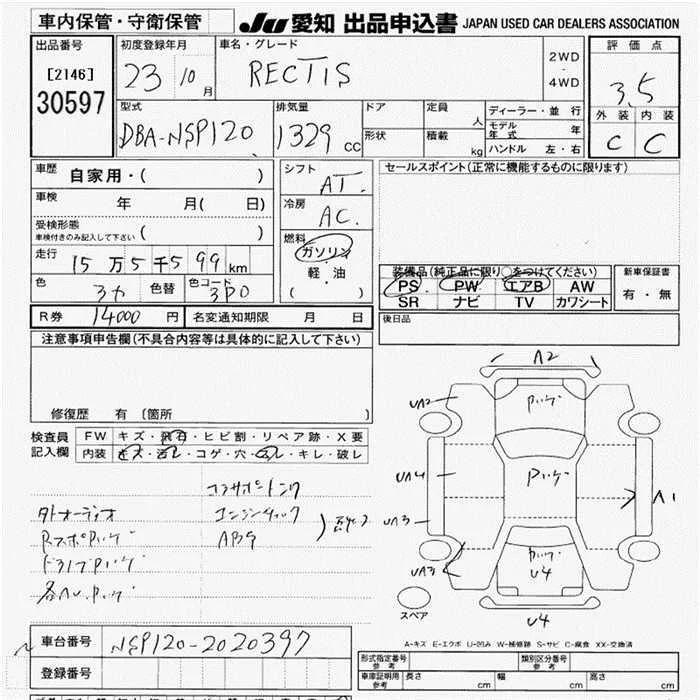 車内保管・守衛保管 JU 愛知 出品申込書 JAPAN USED CAR DEALERS ASSOCIATION
出品番号 初度登録年月 車名・グレード 2WD・4WD 評価点
[2146] 30597 23 10月 RECTIS 3.5
型式 排気量 ドア 定員 人 ディーラー・並行 外装 内装
DBA-NSP120 1329cc 形状 積載 kg モデル年式 年 C C
ハンドル 左・右
車歴 自家用・( ) シフト AT. セールスポイント(正常に機能するものに限ります)
車検 年 月( 日) 冷房 AC.
受検形態 車検付きのみ記入して下さい ( ) 燃料 ガソリン
走行 15万5千599km 軽・油 装備品(純正品に限り○をつけてください) 新車保証書
色 色替 色コード 3P0 ( ) PS PW エアB AW 有・無
SR ナビ TV カワシート
R券 14000円 名変通知期限 月 日 後日品
注意事項申告欄(不具合内容等は具体的に記入して下さい)
修復歴 有 〔箇所 〕
検査員記入欄 FW キズ・飛石・ヒビ割・リペア跡・X要
内装 キズ・汚レ・コゲ・穴・スレ・キレ・破レ
コアサポートンク
外オーディオ エンジンチェック
RスポPハゲ ABS
ドライブPハゲ
各ヘUPハゲ
A2
UA2 Pハゲ
UA4 Pハゲ A1
UA3
UA3 Pハゲ U4
スペア U4
A-キズ E-エクボ U-凹み W-補修跡 S-サビ C-腐食 XX-交換済
車台番号 NSP120-2020397
登録番号
形式指定番号 参考 類別区分番号 参考
車庫証明用 参考 長さ cm 幅 cm 高さ cm